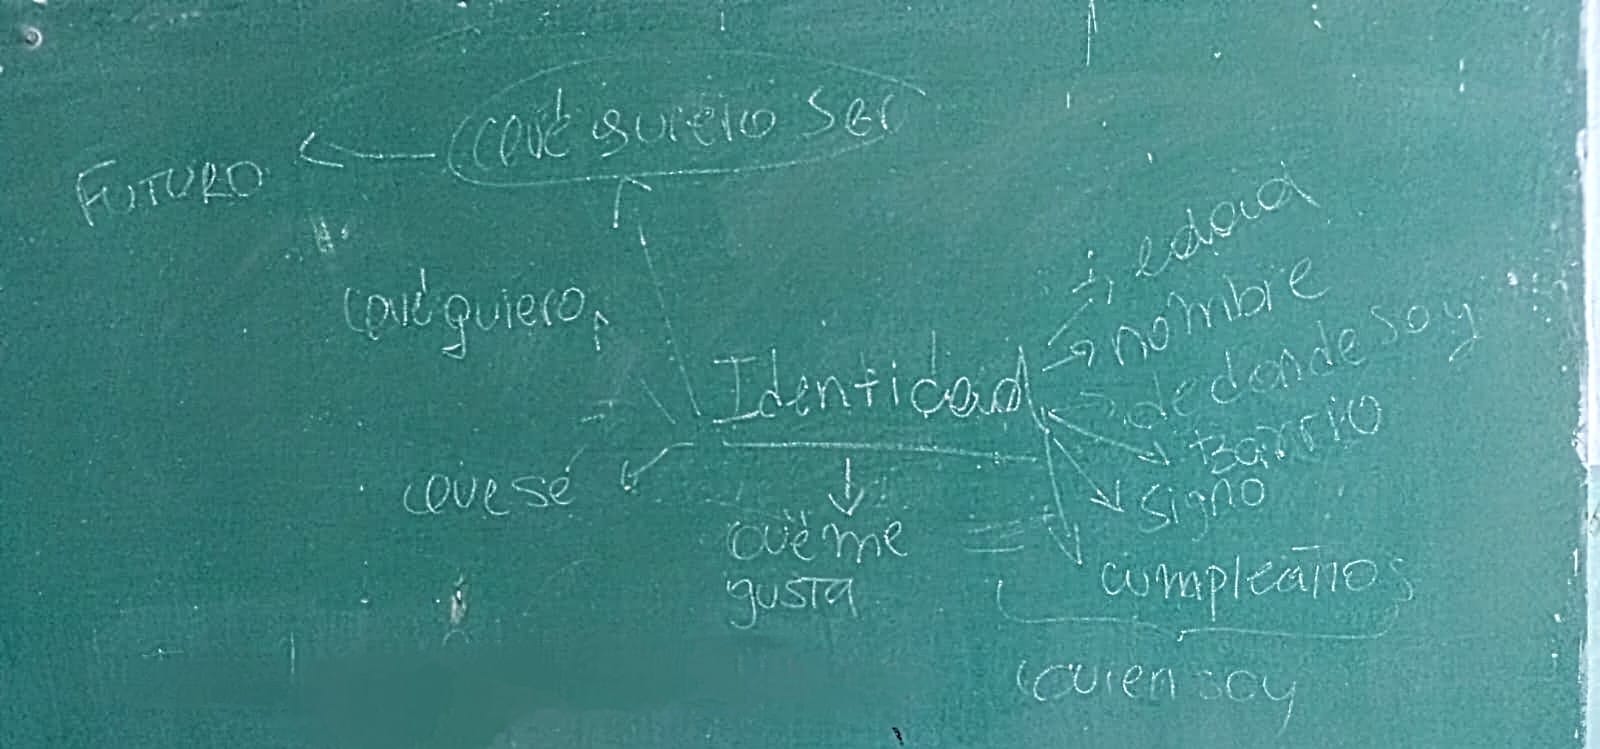 Qué quiero ser
FUTURO
edad
Qué quiero
nombre
Identidad
de donde soy
Barrio
Que sé
signo
Qué me
gusta
cumpleaños
Quien soy